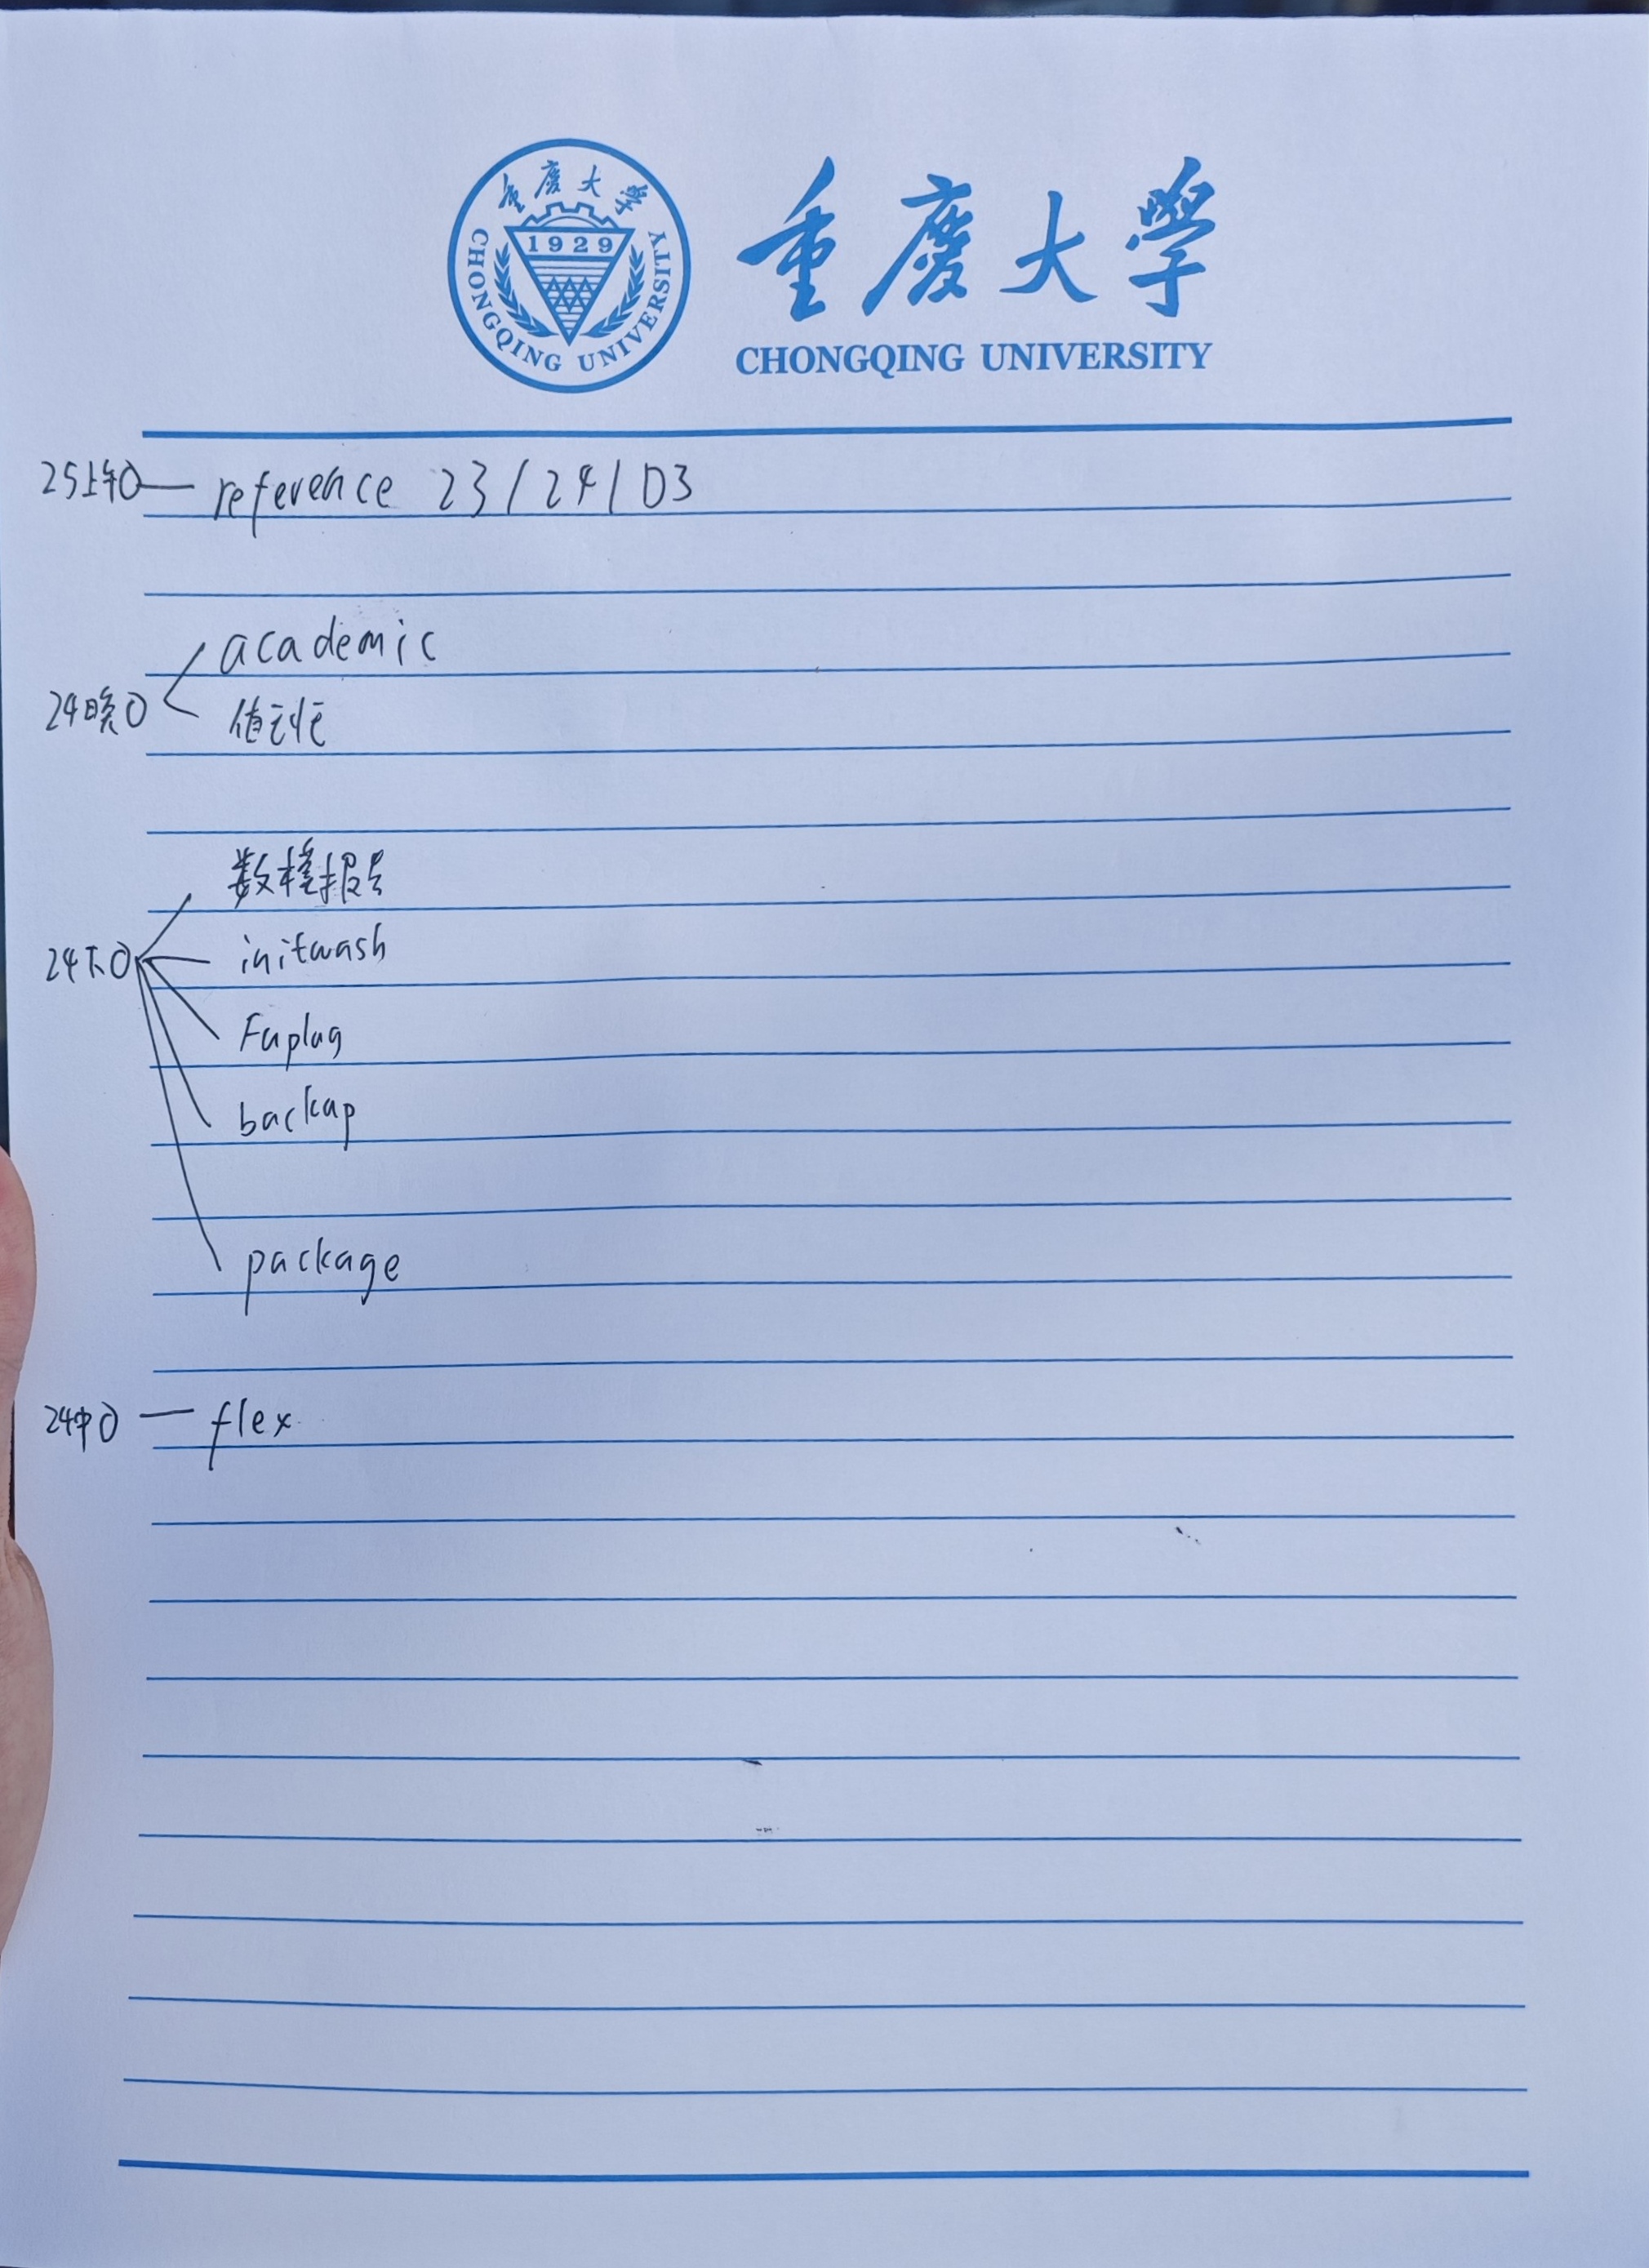 重慶大學
1929
CHONGQING UNIVERSITY
重慶大學
CHONGQING UNIVERSITY
25上午 — reference 23/24/D3
academic
24晚
数模报名
24下 initwash
Fuplug
backup
package
24中 — flex